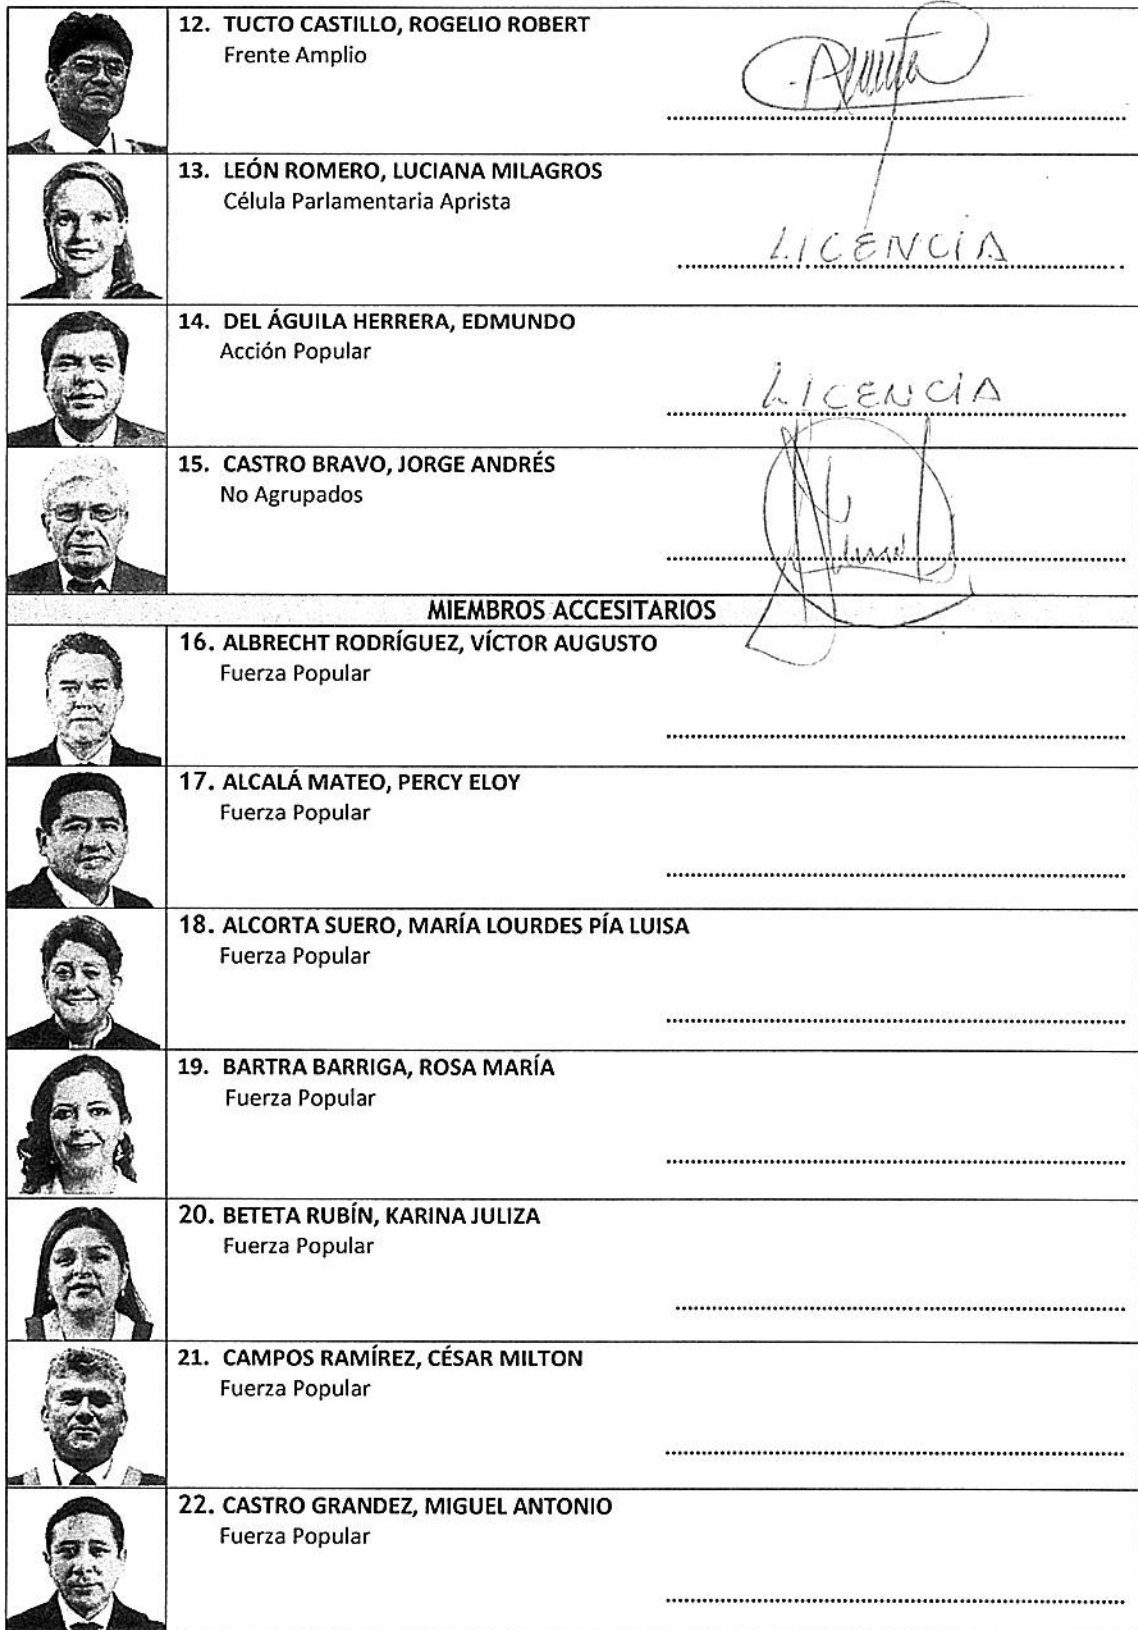 12. TUCTO CASTILLO, ROGELIO ROBERT
Frente Amplio
13. LEÓN ROMERO, LUCIANA MILAGROS
Célula Parlamentaria Aprista
LICENCIA
14. DEL ÁGUILA HERRERA, EDMUNDO
Acción Popular
LICENCIA
15. CASTRO BRAVO, JORGE ANDRÉS
No Agrupados
MIEMBROS ACCESITARIOS
16. ALBRECHT RODRÍGUEZ, VÍCTOR AUGUSTO
Fuerza Popular
17. ALCALÁ MATEO, PERCY ELOY
Fuerza Popular
18. ALCORTA SUERO, MARÍA LOURDES PÍA LUISA
Fuerza Popular
19. BARTRA BARRIGA, ROSA MARÍA
Fuerza Popular
20. BETETA RUBÍN, KARINA JULIZA
Fuerza Popular
21. CAMPOS RAMÍREZ, CÉSAR MILTON
Fuerza Popular
22. CASTRO GRANDEZ, MIGUEL ANTONIO
Fuerza Popular